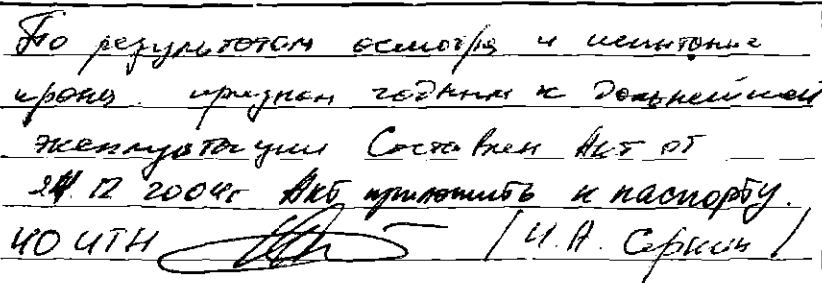 По результатам осмотра и испытание
крана признан годным к дальнейшей
эксплуатации Составлен Акт от
12 2004г Акт приложить к паспорту.
ИТН / И.А. Серкин /